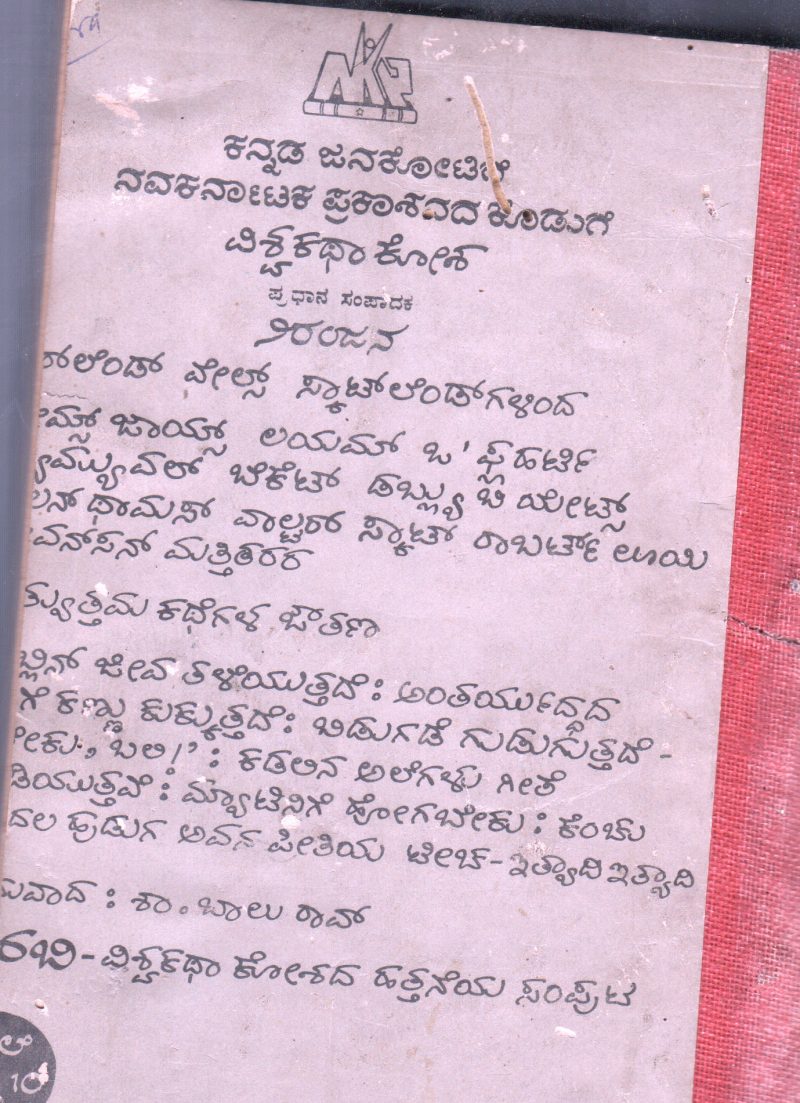 ಕನ್ನಡ ಜನಕೋಟಿಗೆ
ನವಕರ್ನಾಟಕ ಪ್ರಕಾಶನದ ಕೊಡುಗೆ
ವಿಶ್ವಕಥಾ ಕೋಶ
ಪ್ರಧಾನ ಸಂಪಾದಕ
ನಿರಂಜನ
ರ್ಲೆಂಡ್ ವೇಲ್ಸ್ ಸ್ಕಾಟ್‌ಲೆಂಡ್‌ಗಳಿಂದ
ಮ್ಸ್ ಜಾಯ್ಸ್ ಲಯಮ್ ಒ' ಫ್ಲಹರ್ಟಿ
ಮ್ಯುಯಲ್ ಬೆಕೆಟ್ ಡಬ್ಲ್ಯು ಬಿ ಯೇಟ್ಸ್
ಲನ್ ಥಾಮಸ್ ವಾಲ್ಟರ್ ಸ್ಕಾಟ್ ರಾಬರ್ಟ್ ಲೂಯಿ
ವನ್‌ಸನ್ ಮತ್ತಿತರರ
ತ್ಯುತ್ತಮ ಕಥೆಗಳ ಔತಣ
ಬ್ಲಿನ್ ಜೀವ ತಳೆಯುತ್ತದೆ : ಅಂತರ್ಯುದ್ಧದ
ಗೆ ಕಣ್ಣು ಕುಕ್ಕುತ್ತದೆ : ಬಿಡುಗಡೆ ಗುಡುಗುತ್ತದೆ -
ಬೇಕು, ಬಲಿ!' : ಕಡಲಿನ ಅಲೆಗಳು ಗೀತೆ
ಡಿಯುತ್ತವೆ : ಮ್ಯಾಟಿನಿಗೆ ಹೋಗಬೇಕು : ಕೆಂಚು
ದಲ ಹುಡುಗ ಅವನ ಪ್ರೀತಿಯ ಟೀಚ- ಇತ್ಯಾದಿ ಇತ್ಯಾದಿ
ುವಾದ : ಶಾ. ಬಾಲು ರಾವ್
ರಬಿ - ವಿಶ್ವಕಥಾ ಕೋಶದ ಹತ್ತನೆಯ ಸಂಪುಟ
10